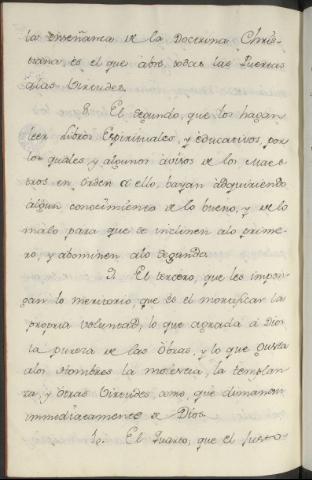 la enseñanza de la Doctrina Chris-
tiana es el que abre todas las Puertas
alas Virtudes.
8. El segundo, que los hagan
leer Libros Espirituales, y educativos, por
los quales, y algunos avisos de los Maes-
tros en orden a ello, bayan adquiriendo
algun conocimiento de lo bueno, y de lo
malo para que se inclinen alo prime-
ro, y abominen alo segundo.
9. El tercero, que les impon-
gan lo meritorio, que es el mortificar la
propria voluntad, lo que agrada á Dios
la pureza de las Obras, y lo que gusta
alos Hombres la modestia, la templan-
za, y otras Virtudes, como que dimanan
immediatamente de Dios.
10. El Quarto, que el justo